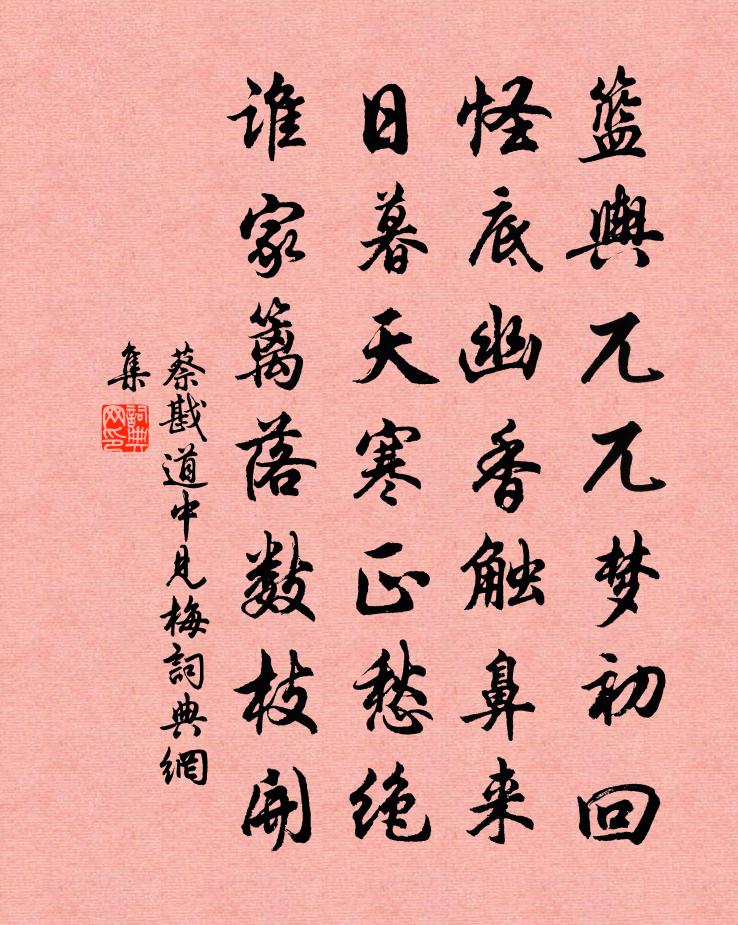 篮舆兀兀梦初回
怪底幽香触鼻来
日暮天寒正愁绝
谁家篱落数枝开
蔡戡道中见梅詞典網
集
詞典
网印